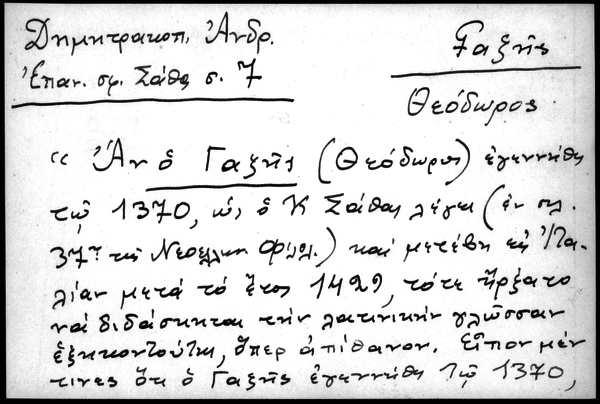 Δημητρακοπ. Ἀνδρ.
Ἐπαν. σφ. Σάθα σ. 7
Γαζῆς
Θεόδωρος
“ Ἄν ὁ Γαζῆς (Θεόδωρος) ἐγεννήθη
τῷ 1370, ὡς ὁ Κ Σάθας λέγει (ἐν σελ.
37ῃ τῆς Νεοελλην Φιλολ.) καί μετέβη εἰς Ἰτα-
λίαν μετά τό ἔτος 1429, τότε ἤρξατο
νά διδάσκηται τήν λατινικήν γλῶσσαν
ἑξηκοντούτης, ὅπερ ἀπίθανον. Εἶπον μέν
τινες ὅτι ὁ Γαζῆς ἐγεννήθη τῷ 1370,